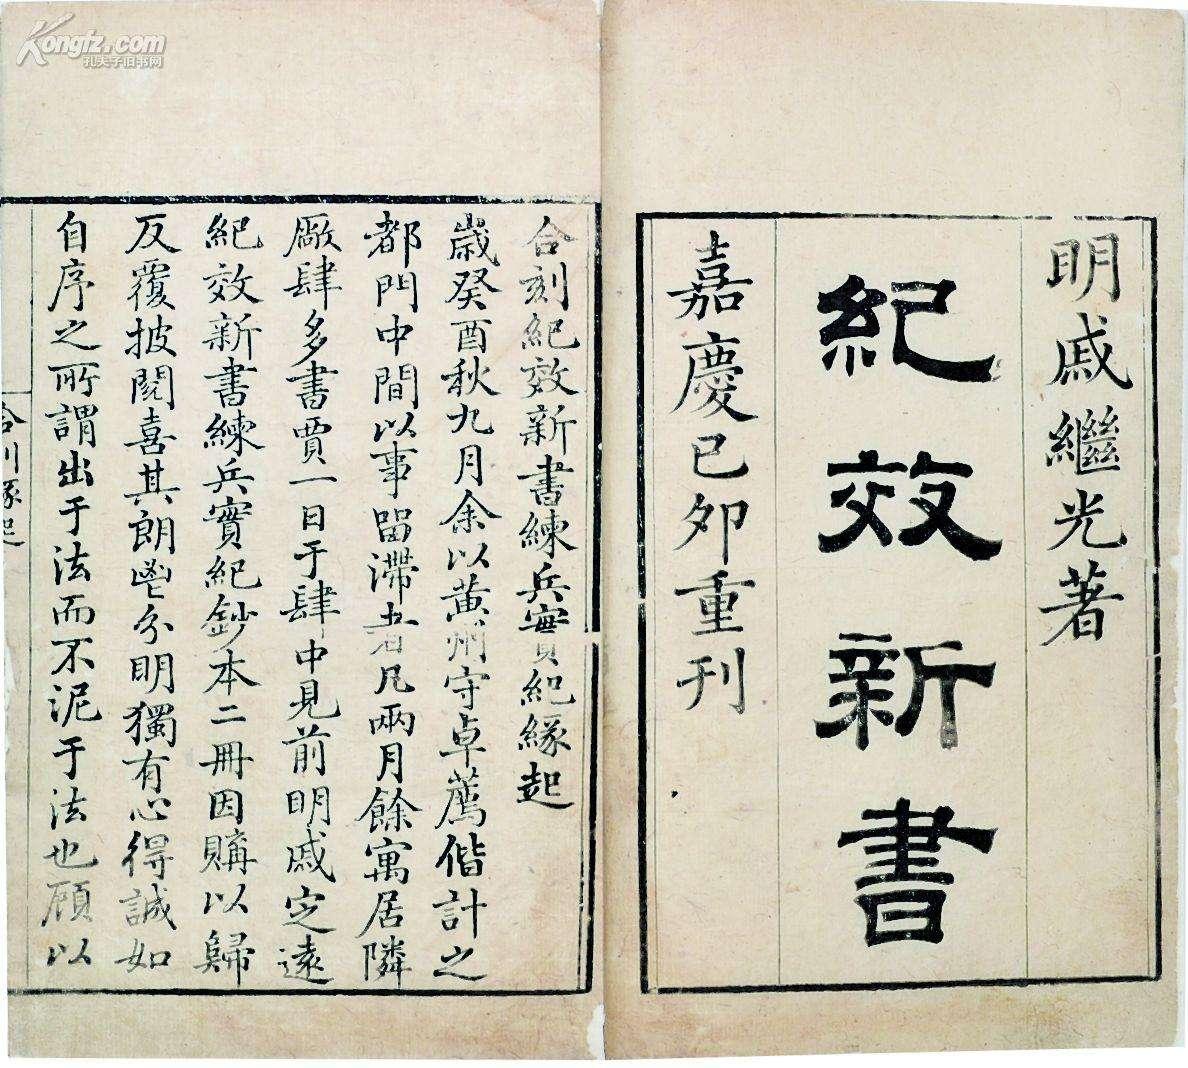 Kongfz.com
孔夫子旧书网
明戚繼光著
紀效新書
嘉慶己卯重刊
合刻紀效新書練兵實紀緣起
歲癸酉秋九月余以黃州守卓薦偕計之
都門中間以事留滯者凡兩月餘寓居隣
厰肆多書賈一日于肆中見前明戚定遠
紀效新書練兵實紀鈔本二冊因購以歸
反覆披閱喜其朗鬯分明獨有心得誠如
自序之所謂出于法而不泥于法也顧以
合刊緣起